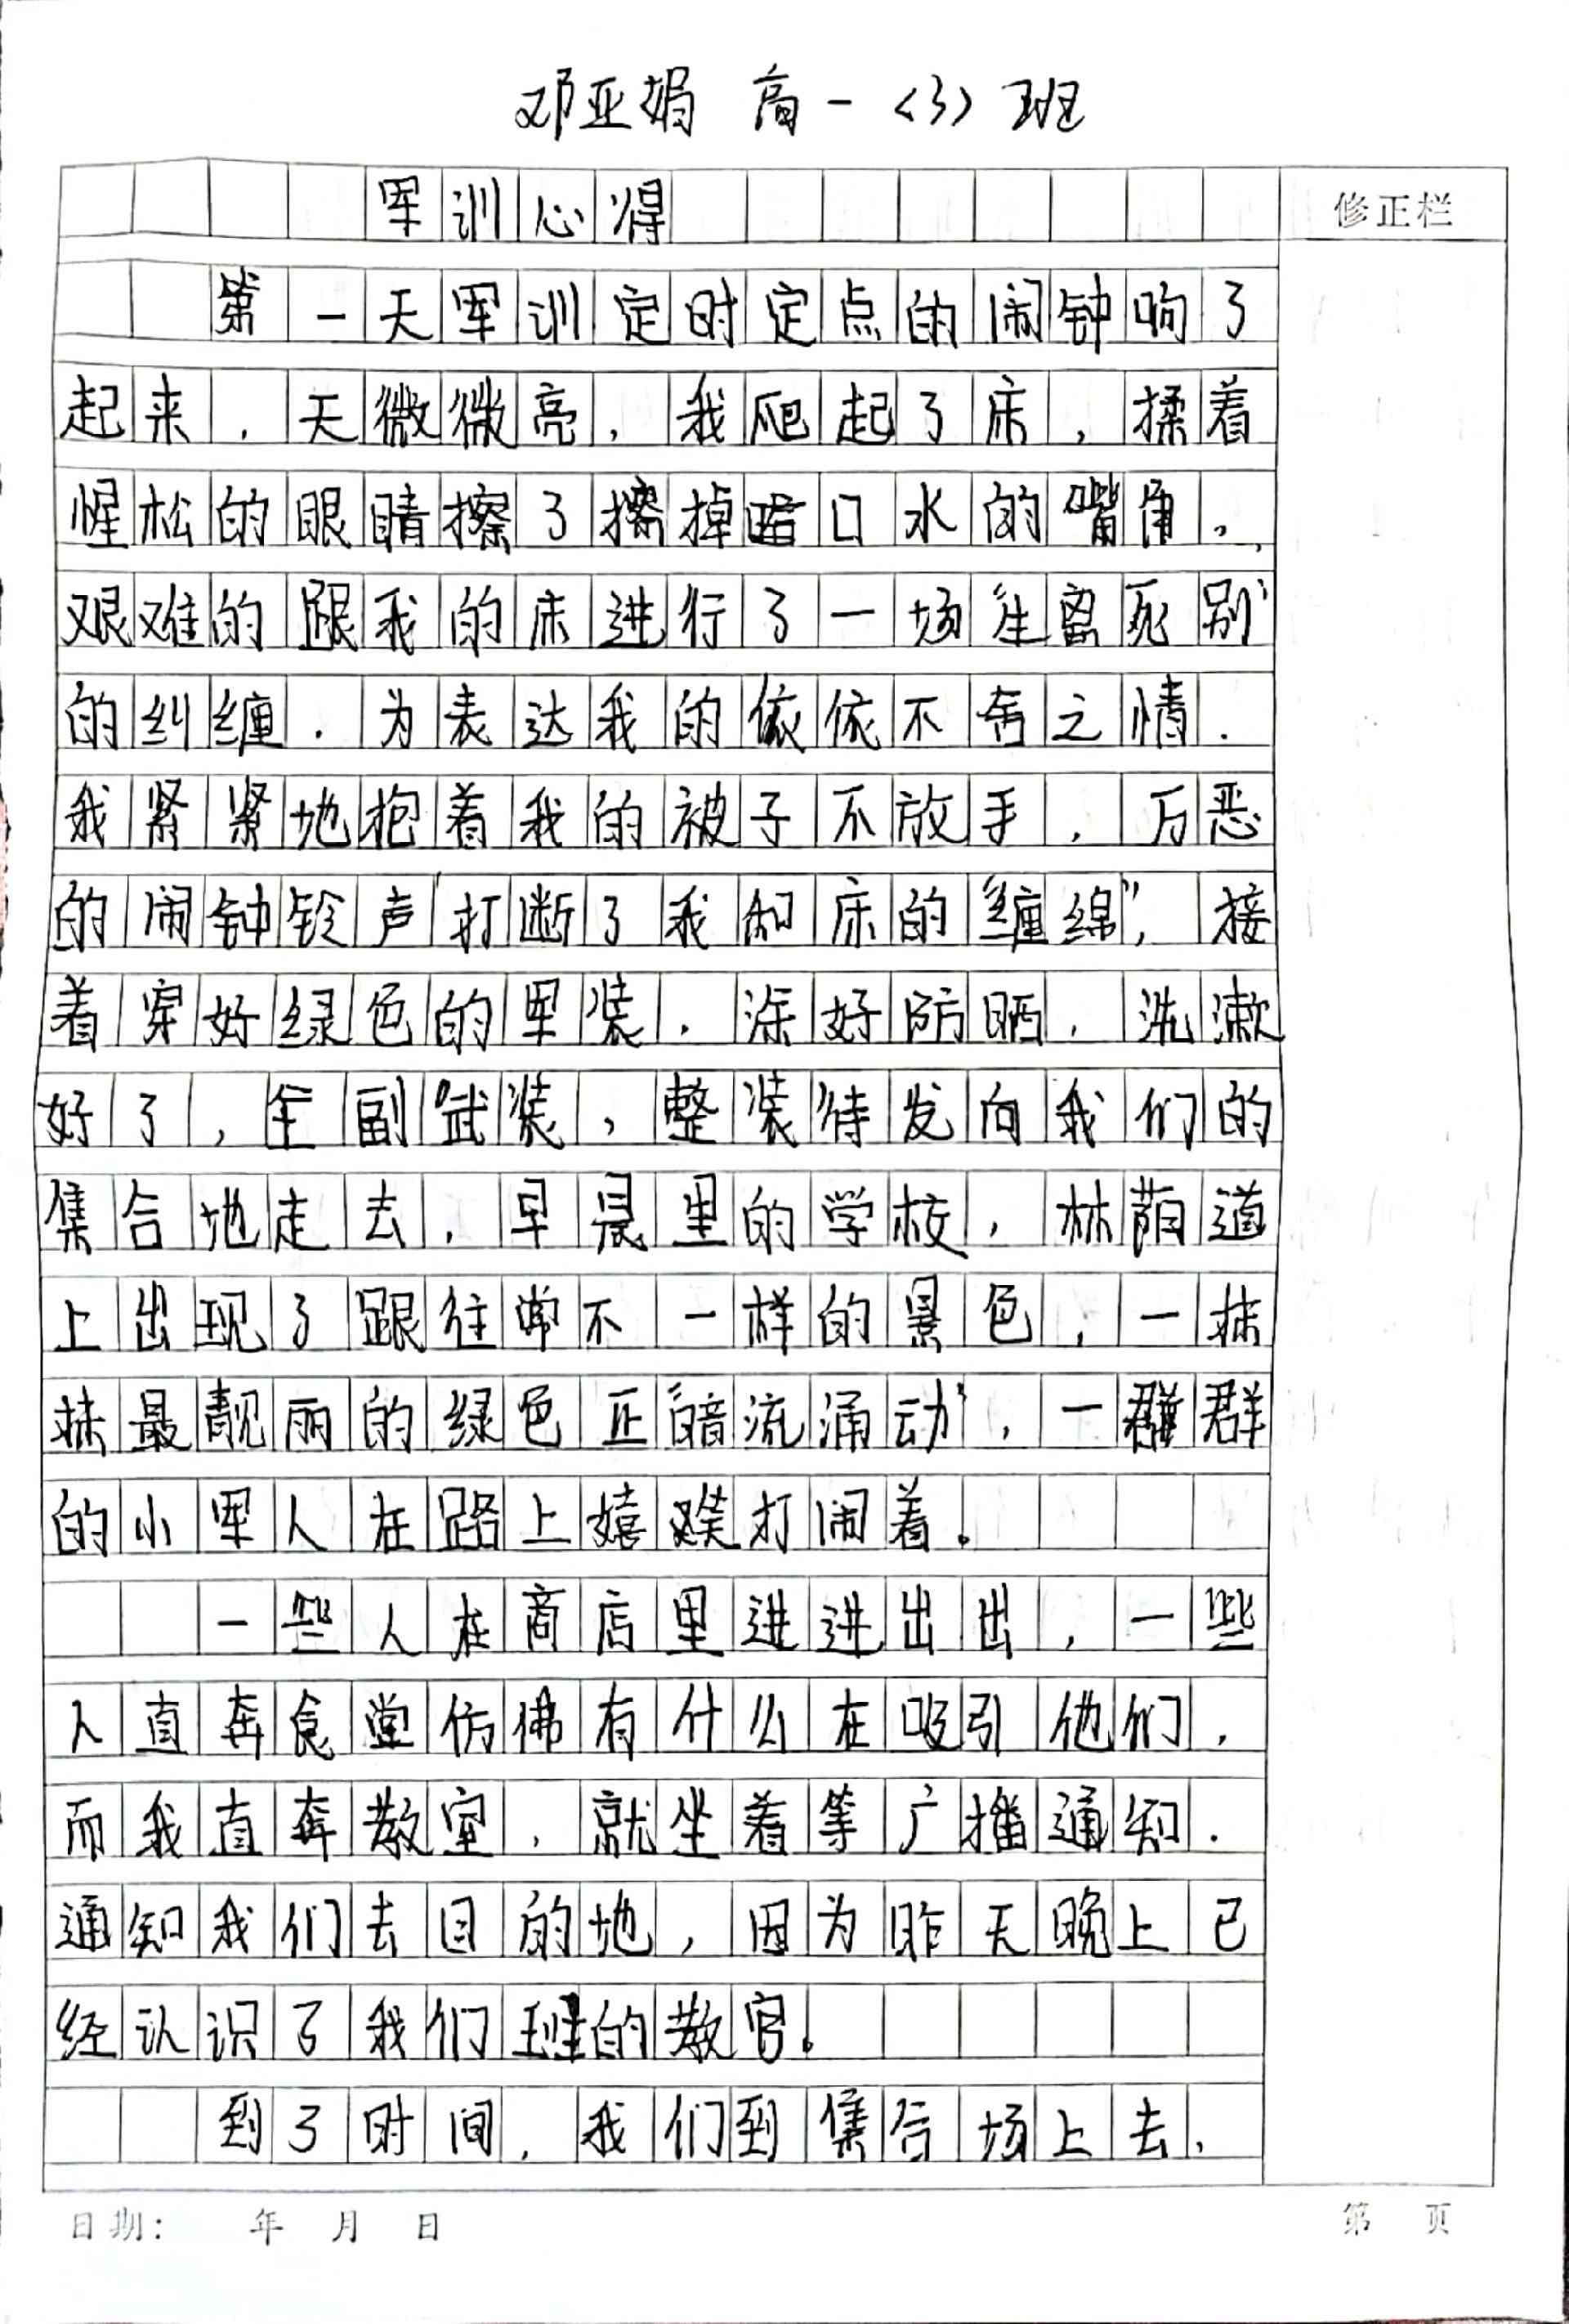 邓亚娟 高一<3>班
军训心得
修正栏
第一天军训定时定点的闹钟响了
起来，天微微亮，我爬起了床，揉着
惺松的眼睛擦了擦掉口水的嘴角，
艰难的跟我的床进行了一场“生离死别”
的纠缠．为表达我的依依不舍之情．
我紧紧地抱着我的被子不放手，万恶
的闹钟铃声打断了我和床的“缠绵”，接
着穿好绿色的军装，涂好防晒，洗漱
好了，全副“武装，整装待发向我们的
集合地走去，早晨里的学校，林荫道
上出现了跟往常不一样的景色，一抹
抹最靓丽的绿色正“暗流涌动”，一群群
的小军人在路上嬉笑打闹着。
一些人在商店里进进出出，一些
人直奔食堂仿佛有什么在吸引他们，
而我直奔教室，就坐着等广播通知．
通知我们去目的地，因为昨天晚上已
经认识了我们班的教官。
到了时间，我们到集合场上去，
日期： 年 月 日
第 页